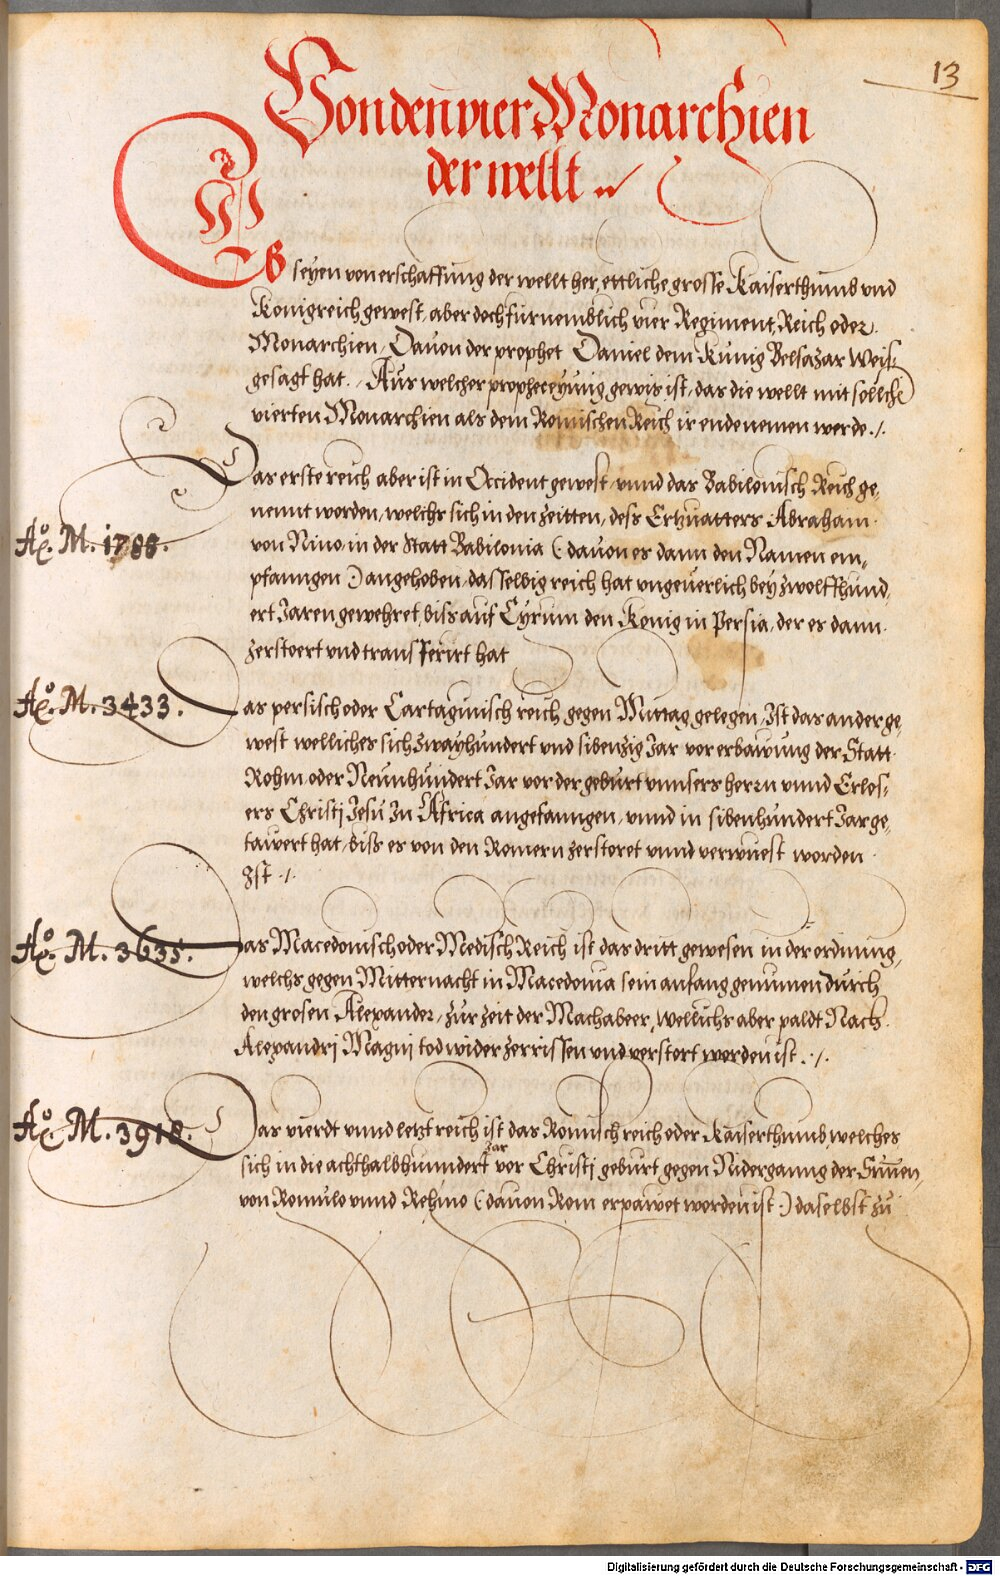 13
Von den vier Monarchien
der wellt
Es seyen von erschaffung der wellt her, ettliche grosse Kaiserthumb vnd
Konigreich gewest, aber doch fürnemblich vier Regiment, Reich oder
Monarchien, Dauon der prophet Daniel dem Kunig Belsazar Weis-
gesagt hat. Aus welcher propheceyung gewis ist, das die wellt mit sollche
vierten Monarchien als dem Romischen Reich ir ende nemen werde ./.
Das erste reich aber ist in Occident gewest, vnnd das Babilonisch Reich ge,
nennt worden, welchs sich in den zeitten, dess Ertzuatters Abraham
Aō. M. 1788.
von Nino in der Statt Babilonia (: dauon es dann den Namen em,
pfanngen :) angehoben, dasselbig reich hat vngeuerlich bey zwolffhund,
ert Jaren gewehret, biss auf Cyrum den Konig in Persia, der es dann
zerstoert vnd transferirt hat
Aō. M. 3433.
Das persisch oder Cartaginisch reich gegen Mittag gelegen, Ist das ander ge,
west welliches sich zwayhundert vnd sibenzig Jar vor erbawung der Statt
Rohm oder Neunhundert Jar vor der geburt vnnsers herrn vnnd Erlos-
ers Christj Jesu Jn Africa angefanngen, vnnd in sibenhundert Jar ge,
tawert hat, biss es von den Romern zerstoret vnnd verwuest worden
Ist ./.
Aō. M. 3635.
Das Macedonisch oder Medisch Reich ist das dritt gewesen in der ordnung,
welchs gegen Mitternacht in Macedonia sein anfang genumen durch
den grosen Alexander, zur zeit der Machabeer, Wellichs aber paldt Nach
Alexandrj Magni tod wider zerrissen vnd verstort worden ist ./.
Aō. M. 3918.
Das vierdt vnnd letzt reich ist das Romisch reich oder Kaiserthumb welches
sich in die achthalbhunndert Jar vor Christj geburt gegen Niderganng der Sunnen,
von Romulo vnnd Rehmo (: dauon Rom erpawet worden ist :) daselbst zu
Digitalisierung gefördert durch die Deutsche Forschungsgemeinschaft - DFG